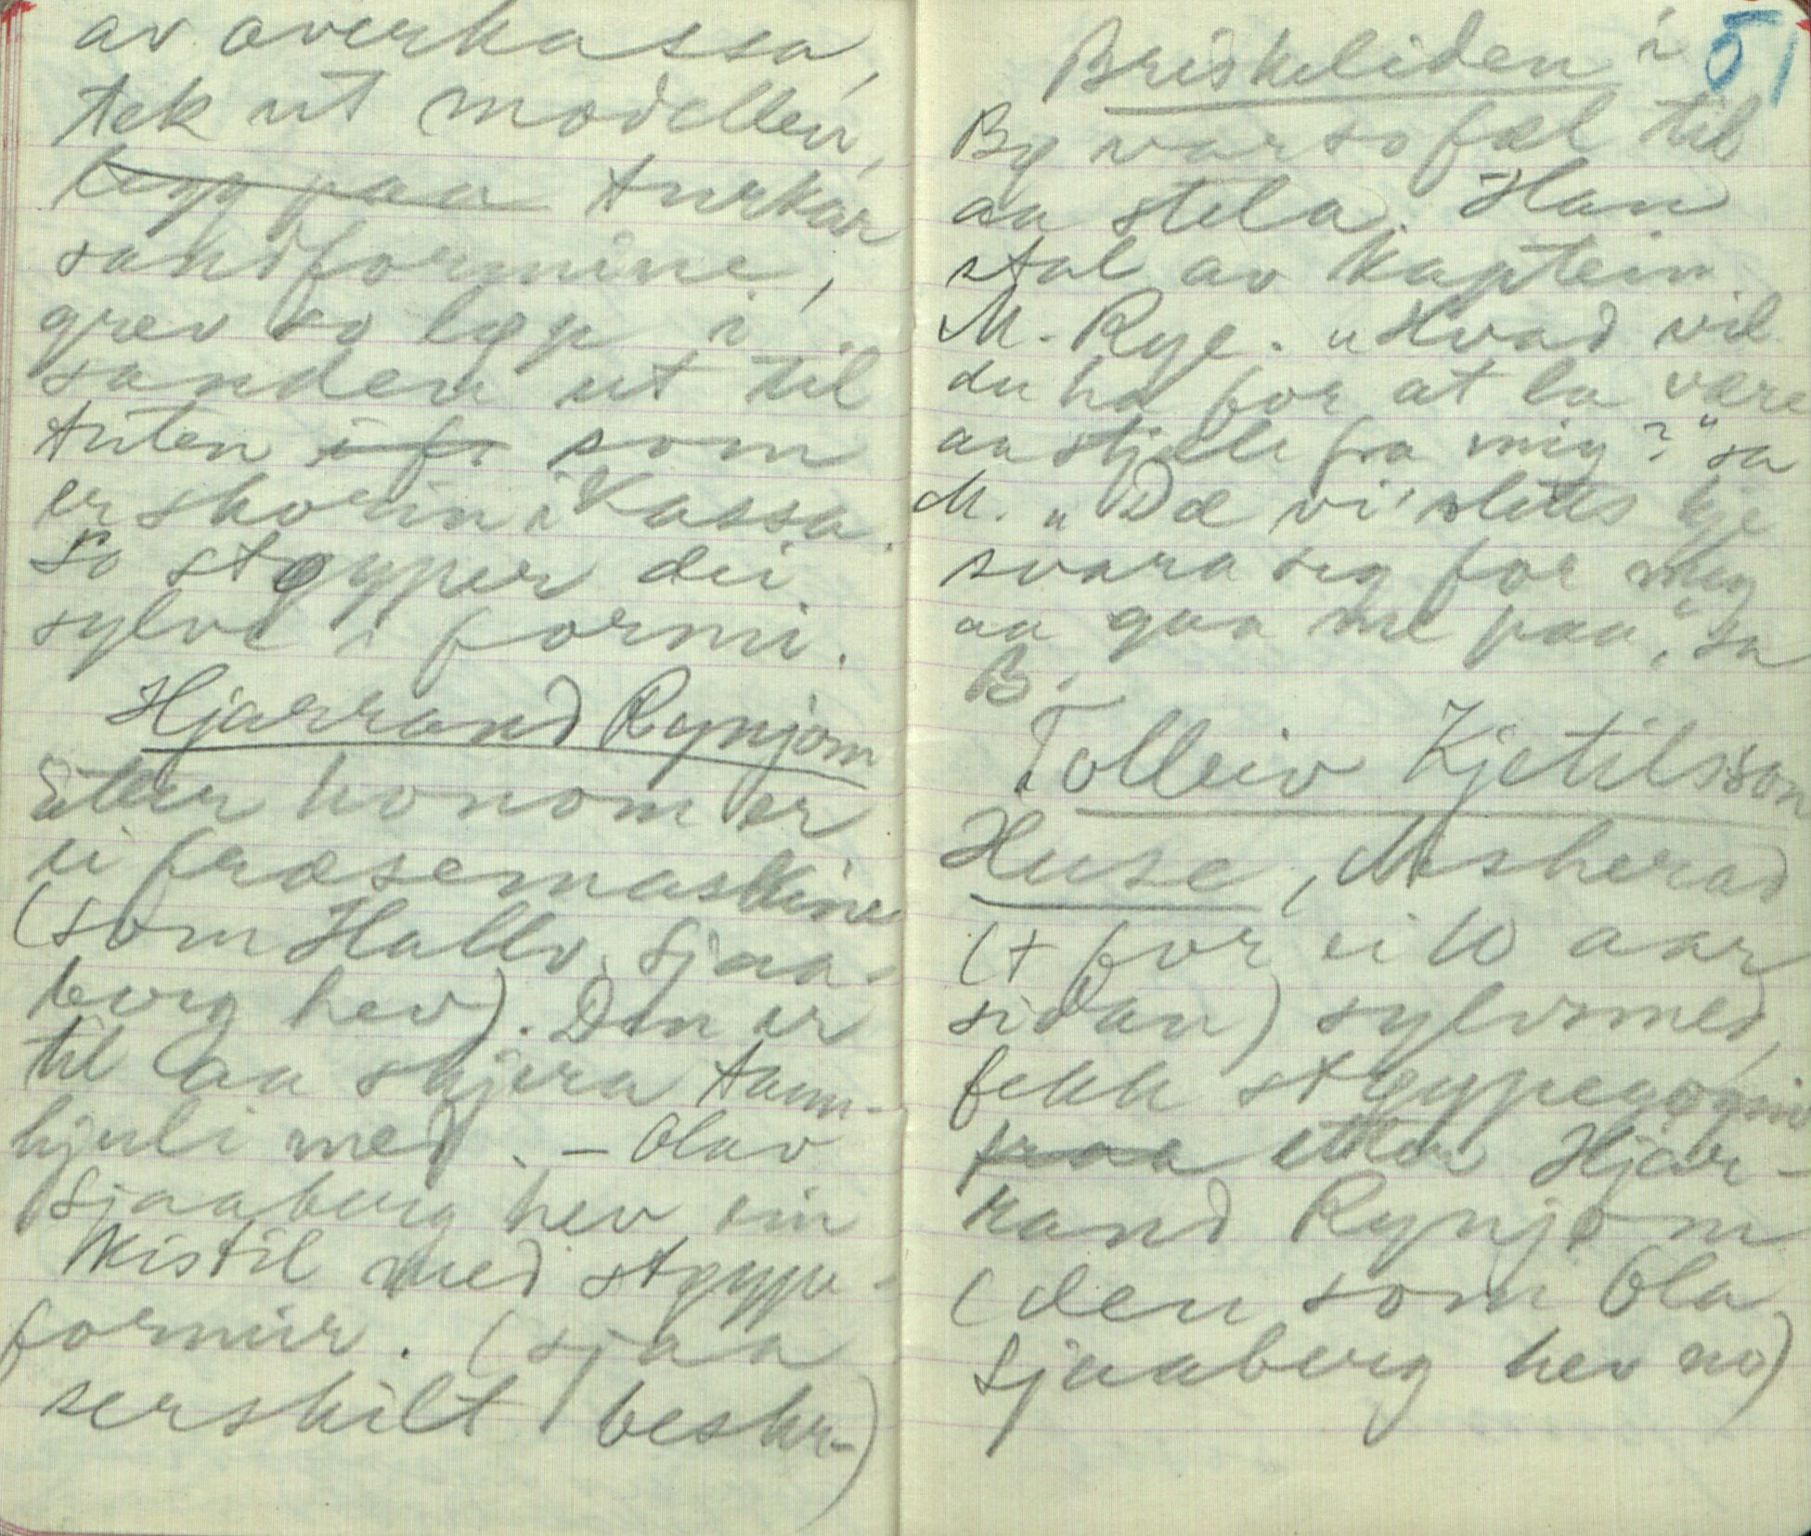 av overkassa,
tek ut modellen,
legg paa turkar
sandformine,
grev so løp i
sanden ut til
tuten i fr som
er skorin i kassa.
So støyper dei
sylve i formi.
Hjarrand Rynjom
Etter honom er
ei fræsemaskine
(som Hallv. Sjaa-
berg hev). Den er
til aa skjera tann-
hjuli med. - Olav
Sjaaberg hev ein
kistil med støype-
formir. (sjaa
serskilt beskr-)
51
Briskeliden i
Bø var so fæl til
aa stela. Han
stal av kaptein
M. Rye. "Hvad vil
du ha for at la være
aa stjæle fra mig?" sa
M. "Dæ vi' slettes kje
svara seg for meg
aa gaa me paa," sa
B.
Tolleiv Kjetilsson
Huse, Msherad
(+ for ei 10 aar
sidan) sylvsmed,
fekk støypegogni
fraa etter Hjar-
rand Rynjom
(den som Ola
Sjaaberg hev no)